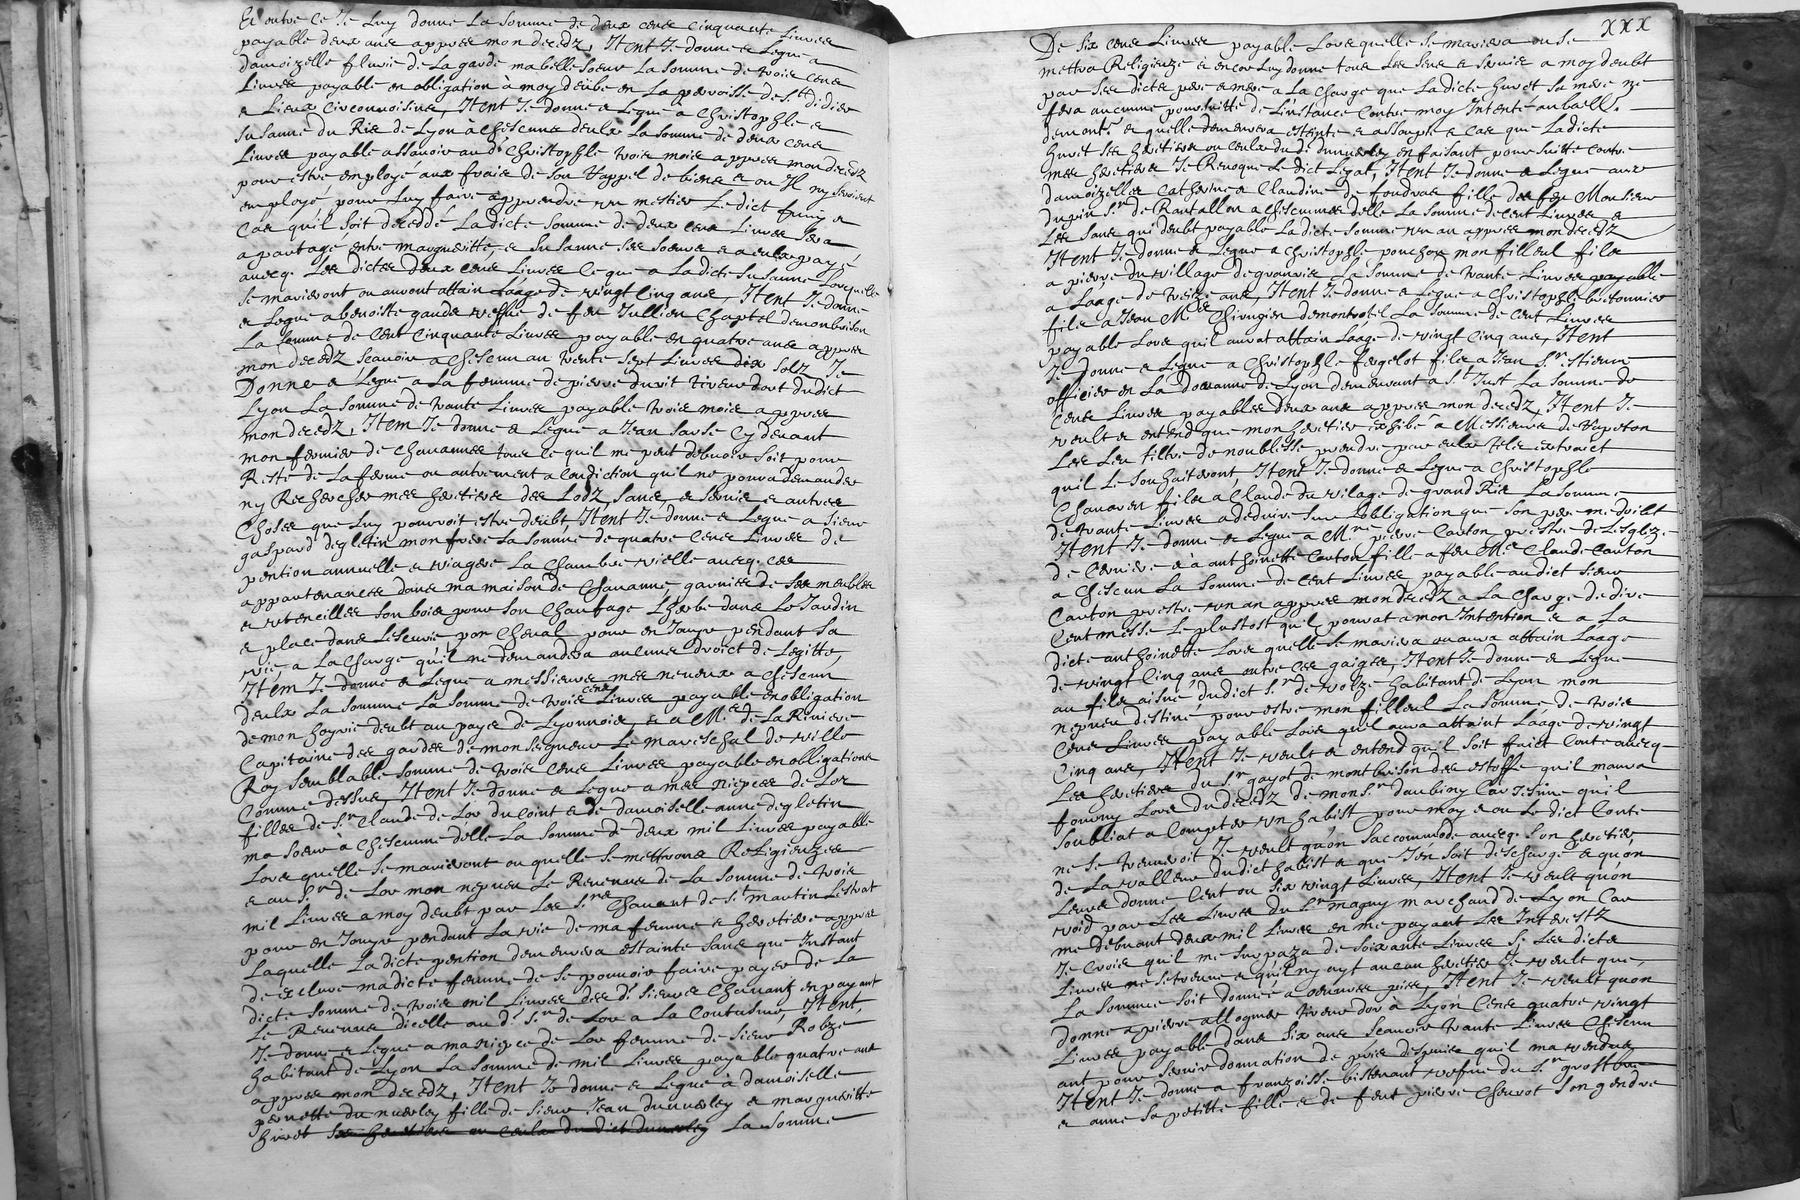 Et outre ce Je Luy donne La somme de deux cens cinquante Livres
payable deux ans appres mon decedz, Itent Je donne & Legue a
damoizelle fluvie de La garde ma belle soeur La somme de trois cens
Livres payable en obligation à moy deube en La parroisse de St didier
& Lieux circonvoisins, Itent Je donne & Legue a Christophle &
Susanne du Ris de Lyon à chescune deulx La somme de deux cens
Livres payable assavoir aud Christophle trois mois appres mon decedz
pour estre employé aux frais de son rappel de biens & ou Il ny seroient
employé pour Luy faire apprendre un mestier Le dict finiy &
Cas qu'il soit deceddé La dicte somme de deux cens Livres sera
a partage entre margueritte, & Susanne ses soeurs & a eulx payé
avecq. Les dictes deux cens Livres Ce que a La dicte Susanne Lorsquelle
se marieront ou auront attain Laage de vingt cinq ans, Itent Je donne
& Legue a benoiste gaude vefve de feu Jullien Chaptel demonbrison
La somme de Cent Cinquante Livres payable en quatre ans appres
mon decedz scavoir a chescun an trente sept Livres dix solz Je
Donne & Legue a La femme de pierre durit tireur dort dudict
Lyon La somme de trante Livres payable trois mois appres
mon decedz, Item Je donne & Legue a Jean sarse Cy devant
mon fermier de Chavannes tous Ce qu'il me peut debvoir soit pour
Reste de La ferme ou autrement a Condiction qu'il ne pourra demander
ny Rechercher mes heretiers des Lodz, sans & servis & autres
Choses que Luy pourroit estre deubt, Itent Je donne & Legue a sieur
gaspard degletin mon frere La somme de quatre Cens Livres de
pention annuelle & viagere La chambre vielle avecq. ces
appartenances dans ma maison de Chavanne, garnies de ses meubles
& utencilles son bois pour son Chaufage L'herbe dans Le Jardin
& place dans Lescurie pour Cheval pour en Jouyr pendant sa
vie, a La charge qu'il ne demandera aucuns droict de Legitte,
Item Je donne & Legue a messieurs mes neveux a chescun
deulx La somme La somme de trois cens Livres payable en obligation
de mon hoyrie deubt au pays de Lyonnois, & a Mr de La Riviere
Capitaine des gardes de monseigneur Le mareschal de ville
Roy semblable somme de trois Cens Livres payable en obligations
Comme dessus, Itent Je donne & Legue a mes niepces de Lor
filles de Sr Claude de Lor du Coint & de damoiselle anne degletin
ma soeur à chescunne delle La somme de deux mil Livres payable
Lors quelle se marieront ou quelle se mettrons Religieuzes
& au Sr de Lor mon nepveu Le Revenus de La somme de trois
mil Livres a moy deubt par Les Srs Chavant de St martin Lestrat
pour en Jouyr pendant La vie de ma femme & heretiere appres
Laquelle La dicte pention demeurera estainte sans que Instant
de exclure madicte femme de se pouvoir faire payer de La
dicte somme de trois mil Livres des ds sieurs Chavantz en payant
Le Revenus d'icelle au d. Sr de Lor a La Coustume, Itent,
Je donne & Legue a ma niepce de Lor femme de sieur Robze
habitant de Lyon La somme de mil Livres payable quatre ans
appres mon decedz, Itent Je donne & Legue à damoiselle
pernette du nuerley fille de sieur Jean dunuerley & margueritte
huvot ses heretiers ou ceulx du dict dunuerley La somme
XXX
De six cens Livres payable Lors quelle se mariera ou se
mettra Religieuze & encor Luy donne tous Les sens & servis a moy deubt
par ses dictes pere & mere a La charge que La dicte huvot sa mere ne
fera aucunne poursuitte de L'instance Contre moy Intenté au baill.
demontz & quelle demeurera esteinte & assoupie & Cas que La dicte
huvot ses heretiers ou Ceulx du d. dunuerley en faisant poursuitte Contre
mes heretiers Je Revoque Le dict Legat, Itent Je donne & Legue aux
damoizelles Catherine & Claudine de foudras fille des feu Monsieur
dupin Sr de Rantallon a chescunnes delle La somme de Cent Livres &
Les sans qui deubt payable La dicte somme un an appres mon decedz
Itent Je donne & Legue a Christophle ponchon mon filleul filz
a pierre du village de granris La somme de trante Livres payable
a Laage de treize ans, Itent Je donne & Legue a Christophle bretonnier
filz a Jean Mre Chirugien demontrotel La somme de Cent Livres
payable Lors qu'il aurat attain Laage de vingt Cinq ans, Itent
Je donne & Legue a Christophle fergelot filz a Jean Sr estienne
officier en La douanne de Lyon demeurant a St Just La somme de
Cens Livres payables deux ans appres mon decedz, Itent Je
veult & entend que mon heretier exhibe à Messieurs de Rapeton
Les Leu tiltre de noublesse prendre par eulx telz extraict
quil Le souhaiteront, Itent Je donne & Legue a Christophle
Chanaven filz a Claude du vilage de grand Ris La somme
de trante Livres a deduire sur Lobligation que son pere me doibt
Itent Je donne & Legue a Mre pierre Carton prestre de Lesglize
de Cerviere & à anthoinette Carton fille a feu Me Claude Carton
a chescun La somme de Cent Livres payable audict sieur
Carton prestre un an appres mon decedz a La charge de dire
Cent messe Le plustost qu'il pourat a mon Intention & a La
dicte anthoinette Lors quelle se mariera ou aura attain Laage
de vingt Cinq ans outre ses gaiges, Itent Je donne & Legue
au filz aisné dudict Sr de rolze habitant de Lyon mon
nepveu destiné pour estre mon filleul La somme de trois
Cens Livres payable Lors quil aura attaint Laage de vingt
Cinq ans, Itent Je veult & entend qu'il soit faict Conte avecq
Les heretiers du Sr gayot de montbrison des estoffe quil m'aura
fourny Lors du decedz de monsr daubiny Car Jestime qu'il
soubliat a Compter un habist pour moy & ou Le dict Conte
ne se treuveroit Je veult quon s'accommode avecq. son heretier
de La valleur dudict habist & que J'en soit deschargé & qu'on
Leurs donne Cent ou six vingt Livres, Itent Je veult quon
void par Les Livres du Sr magny marchand de Lyon Car
me debvant deux mil Livres en me payant Les Interestz
Je Crois quil me surpaza de soixante Livres Si Les dictes
Livres ne se treuve & qu'il ny ayt aucun heretier Je veult que,
La somme soit donnée a oeuvres pies, Itent Je veult quon
donne a pierre allognet tireur dor à Lyon Cens quatre vingt
Livres payable dans six ans scavoir trante Livres chescun
ant pour servir donnation de pris despuis quil ma vendus
Itent Je donne a franzoisse bistenant vefve du Sr grostbois
& anne sa petitte fille & de feut pierre Chervot son gendre